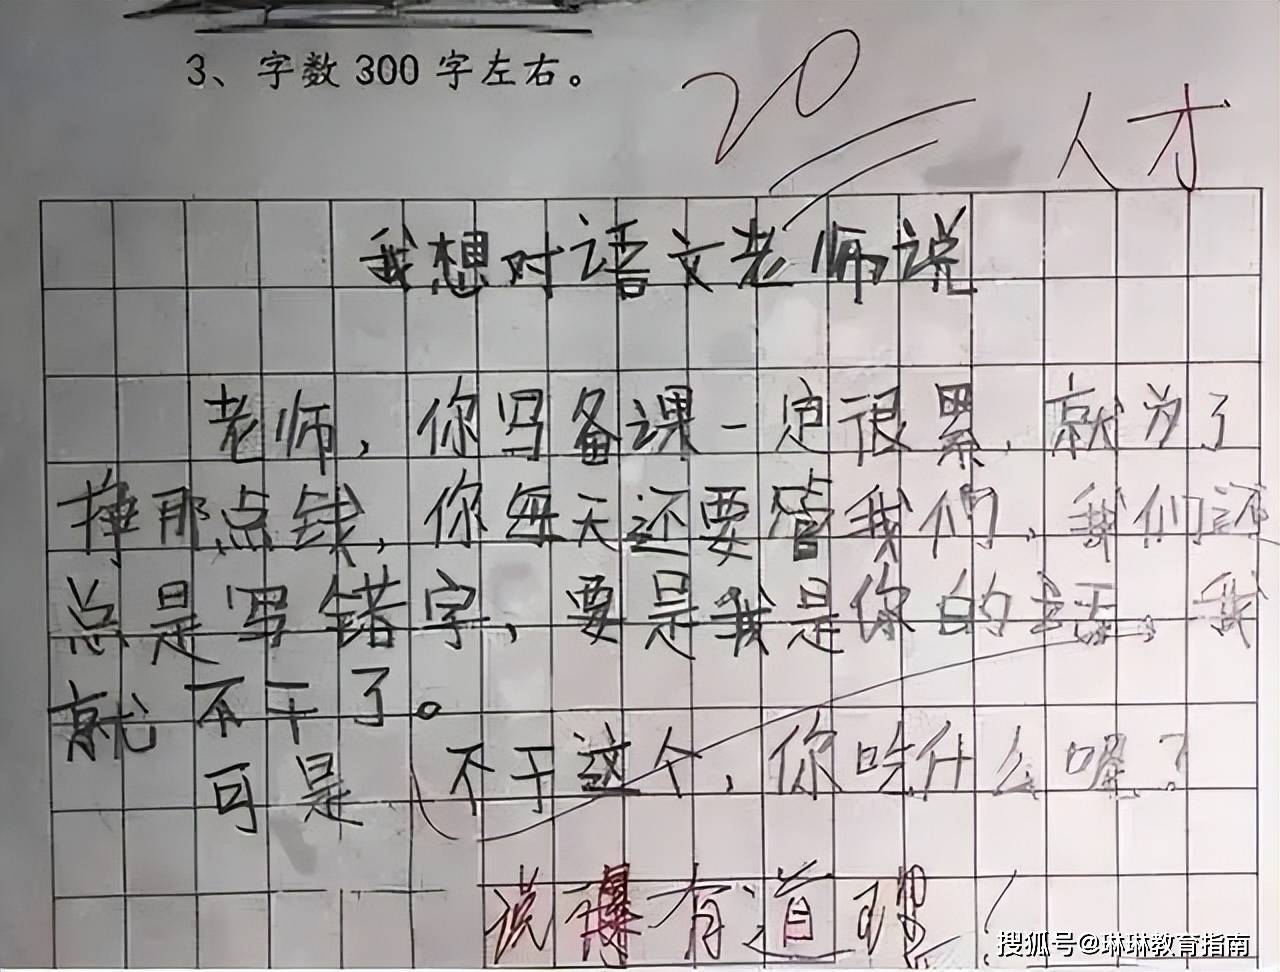 3、字数300字左右。
20
人才
我想对语文老师说
老师，你写备课一定很累，就为了
挣那点钱，你每天还要管我们，我们还
总是写错字，要是我是你的话，我
就不干了。
可是不干这个，你吃什么喔？
说得有道理！
搜狐号@琳琳教育指南